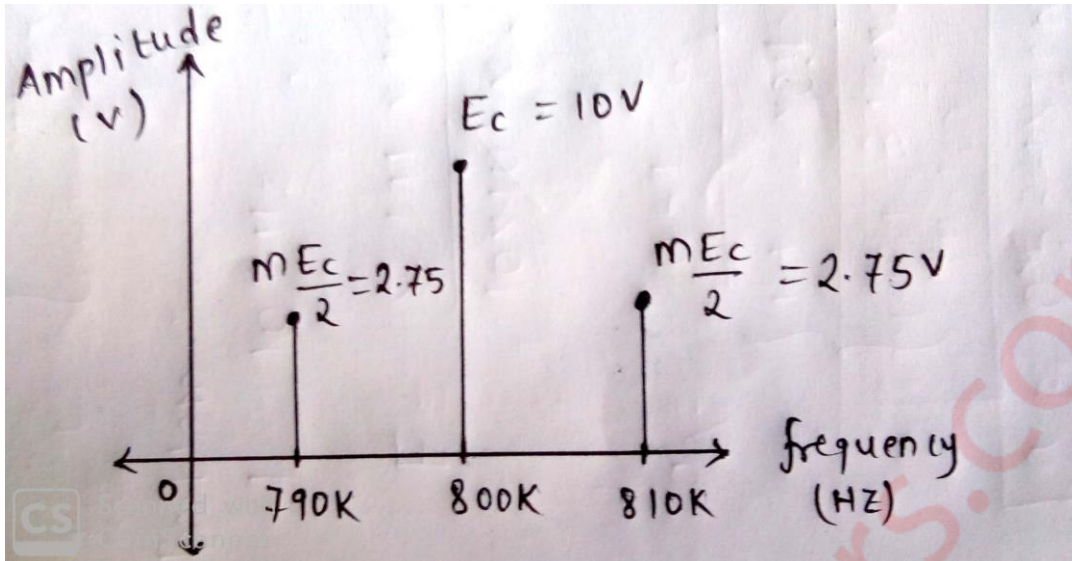 Amplitude
(V)
Ec = 10V
mEc/2 = 2.75
mEc/2 = 2.75V
0
790K
800K
810K
frequency
(HZ)
CS
rs.co